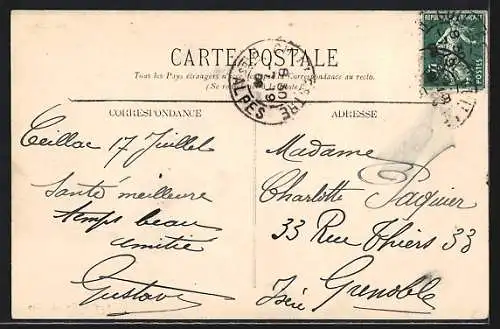 CARTE POSTALE
Tous les Pays étrangers n'acceptent pas la correspondance au recto.
CORRESPONDANCE
Ceillac 17 Juillet
Santé meilleure
temps beau
amitié
Gustave
ADRESSE
Madame
Charlotte Paquier
33 Rue Thiers 33
Grenoble
Isère
RÉPUBLIQUE FRANÇAISE
POSTES
ALPES